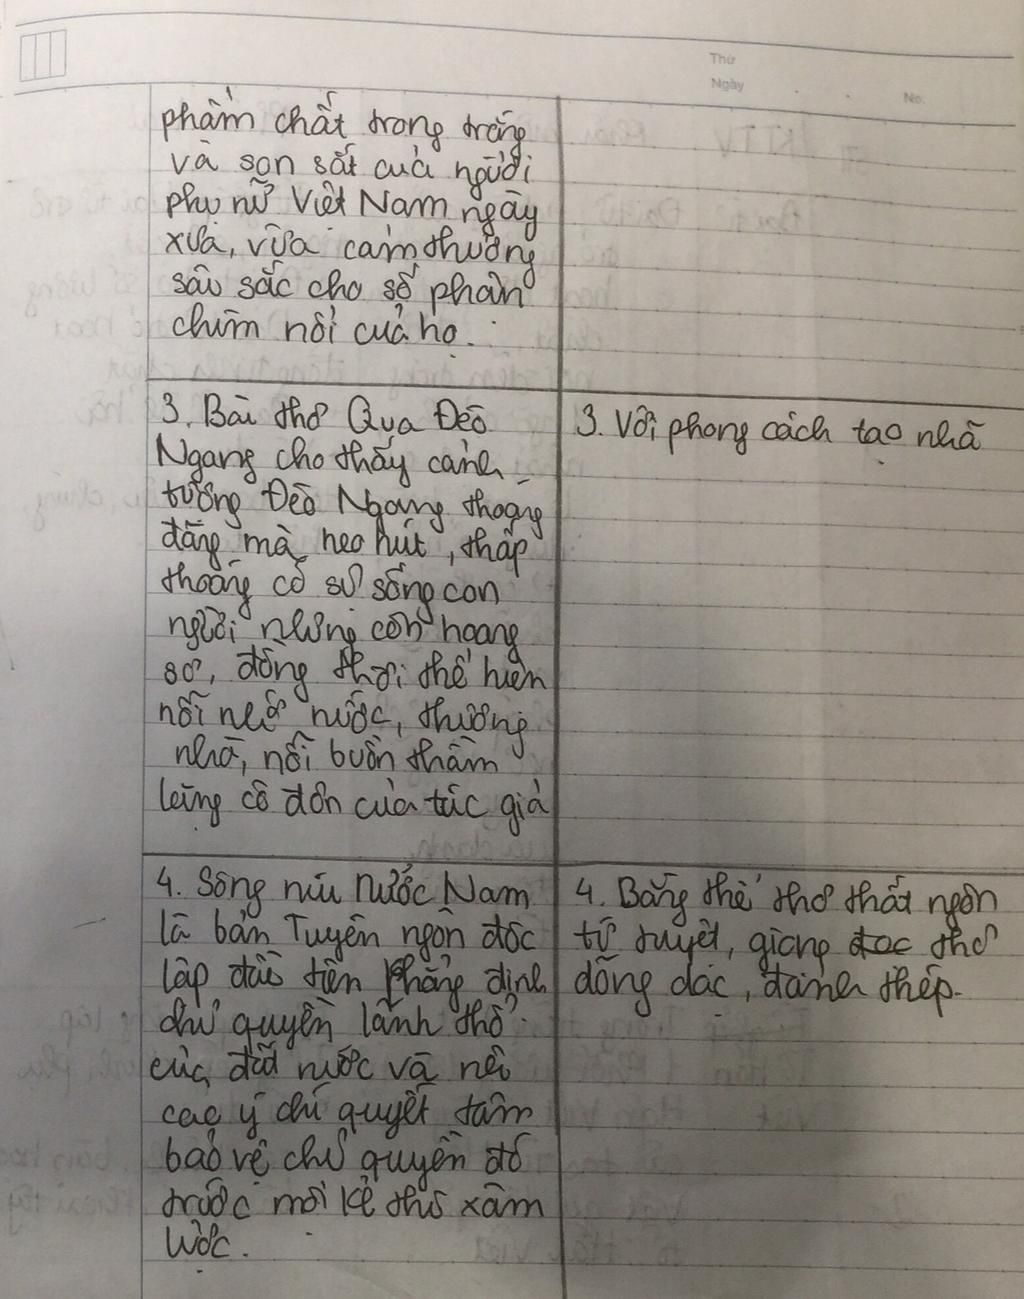 Thứ
Ngày
No.
phẩm chất trong trắng
và son sắt của người
phụ nữ Việt Nam ngày
xưa, vừa cảm thương
sâu sắc cho số phận
chìm nổi của họ.
3. Bài thơ Qua Đèo
Ngang cho thấy cảnh
tượng Đèo Ngang thoáng
đãng mà heo hút, thấp
thoáng có sự sống con
người nhưng còn hoang
sơ, đồng thời thể hiện
nỗi nhớ nước, thương
nhà, nỗi buồn thầm
lặng cô đơn của tác giả
3. Với phong cách tao nhã
4. Sông núi nước Nam
là bản Tuyên ngôn độc
lập đầu tiên khẳng định
chủ quyền lãnh thổ
của đất nước và nêu
cao ý chí quyết tâm
bảo vệ chủ quyền đó
trước mọi kẻ thù xâm
lược.
4. Bằng thể thơ thất ngôn
tứ tuyệt, giọng thơ
dõng dạc, đanh thép.